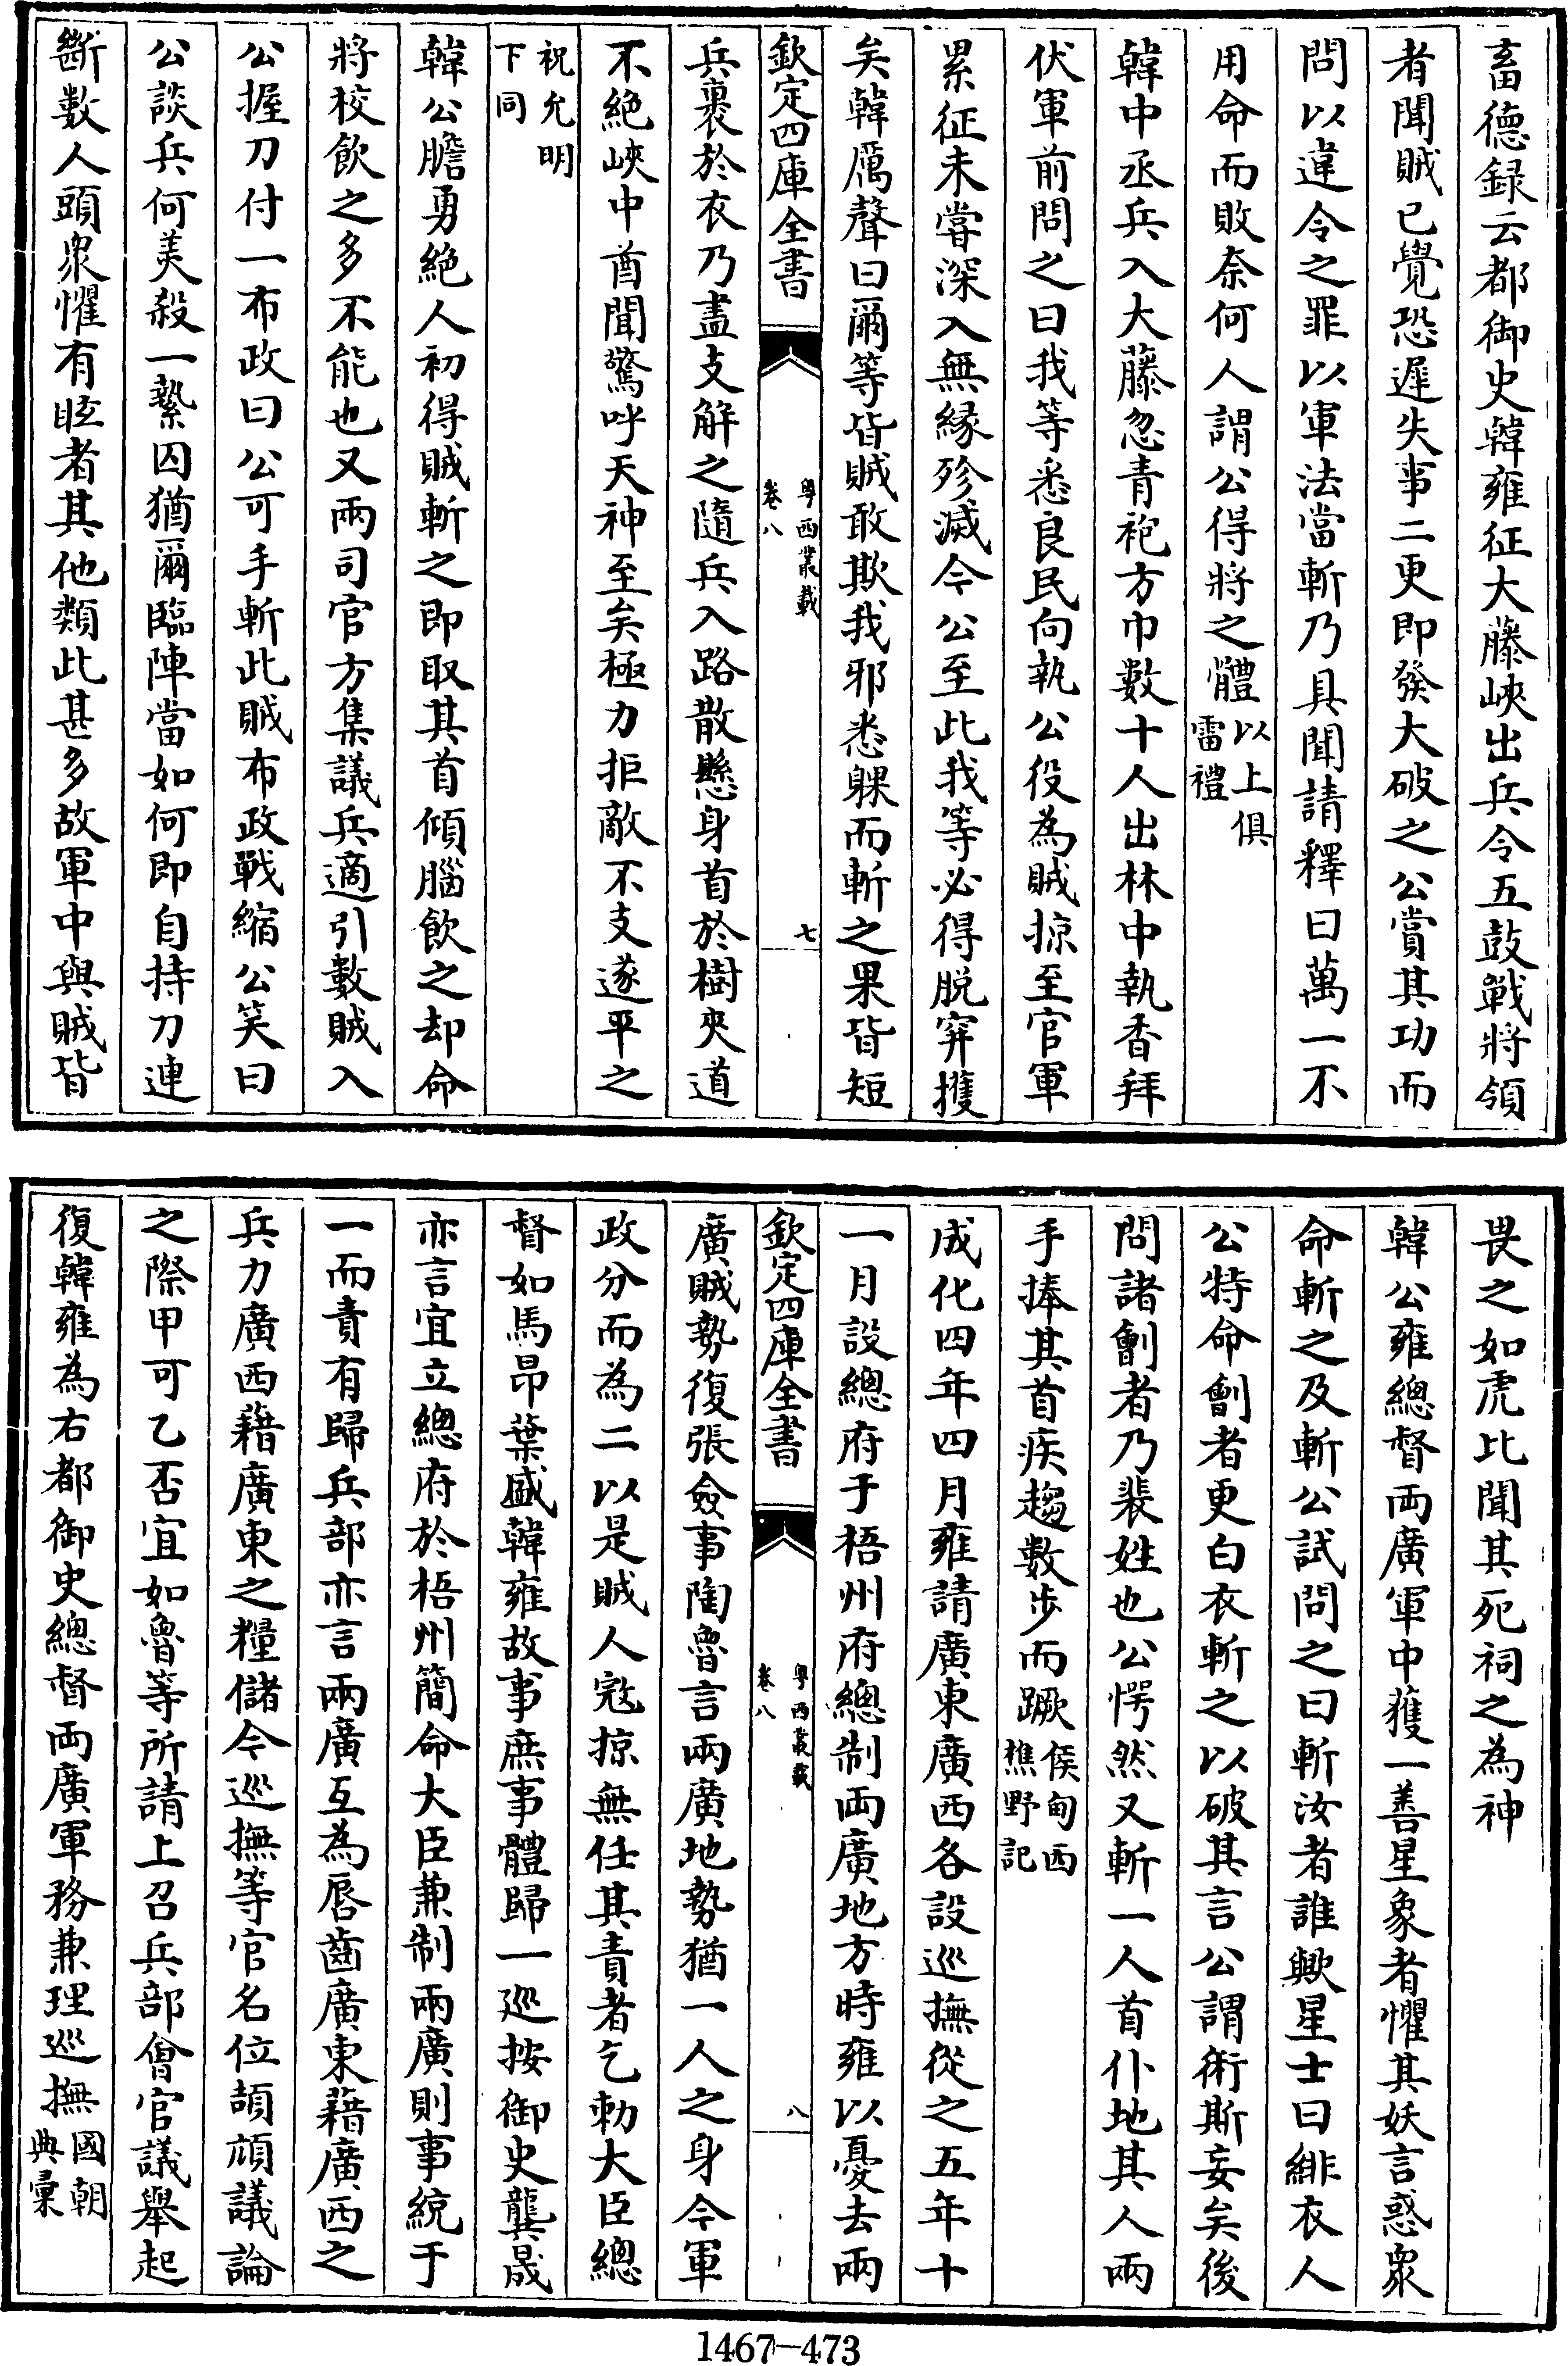 畜德録云都御史韓雍征大藤峽出兵令五鼓戰將領
者聞賊已覺恐遲失事二更即發大破之公賞其功而
問以違令之罪以軍法當斬乃具聞請釋曰萬一不
用命而敗奈何人謂公得將之體以上俱雷禮
韓中丞兵入大藤忽青袍方巾數十人出林中執香拜
伏軍前問之曰我等悉良民向執公役為賊掠至官軍
累征未嘗深入無縁殄滅今公至此我等必得脱穽擭
矣韓厲聲曰爾等皆賊敢欺我邪悉躶而斬之果皆短
欽定四庫全書
粤西叢載
卷八
七
兵裹於衣乃盡支解之隨兵入路散懸身首於樹夾道
不絶峽中酋聞驚呼天神至矣極力拒敵不支遂平之
祝允明
下同
韓公膽勇絶人初得賊斬之即取其首傾腦飲之却命
將校飲之多不能也又兩司官方集議兵適引數賊入
公握刀付一布政曰公可手斬此賊布政戰縮公笑曰
公談兵何美殺一縶囚猶爾臨陣當如何即自持刀連
斷數人頭衆懼有眩者其他類此甚多故軍中與賊皆
畏之如虎比聞其死祠之為神
韓公雍總督兩廣軍中獲一善星象者懼其妖言惑衆
命斬之及斬公試問之曰斬汝者誰歟星士曰緋衣人
公特命劊者更白衣斬之以破其言公謂術斯妄矣後
問諸劊者乃裴姓也公愕然又斬一人首仆地其人兩
手捧其首疾趨數步而蹶侯甸西樵野記
成化四年四月雍請廣東廣西各設巡撫從之五年十
一月設總府于梧州府總制兩廣地方時雍以憂去兩
欽定四庫全書
粤西叢載
卷八
八
廣賊勢復張僉事陶魯言兩廣地勢猶一人之身今軍
政分而為二以是賊人寇掠無任其責者乞勅大臣總
督如馬昂葉盛韓雍故事庶事體歸一巡按御史龔晟
亦言宜立總府於梧州簡命大臣兼制兩廣則事統于
一而責有歸兵部亦言兩廣互為唇齒廣東藉廣西之
兵力廣西藉廣東之糧儲今巡撫等官名位頡頏議論
之際甲可乙否宜如魯等所請上召兵部會官議舉起
復韓雍為右都御史總督兩廣軍務兼理巡撫國朝典彙
1467-473